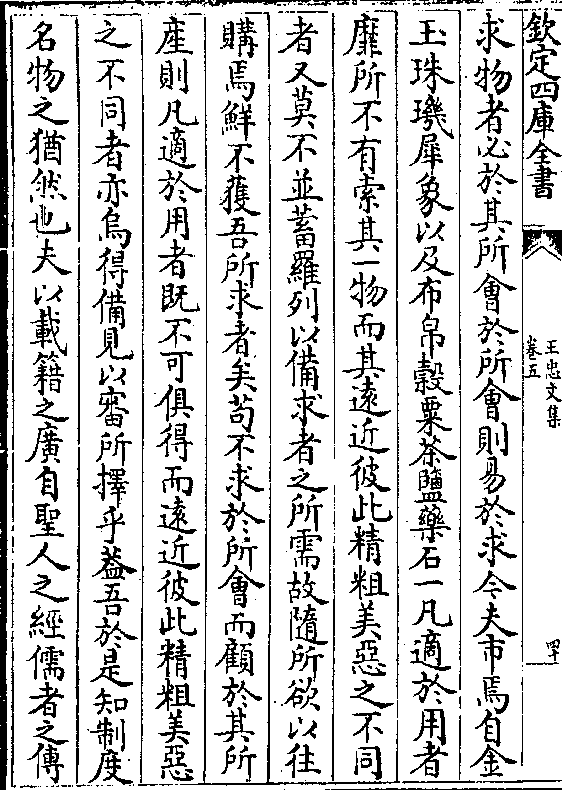 欽定四庫全書
王忠文集
卷五
四十
求物者必於其所會於所會則易於求今夫市焉自金
玉珠璣犀象以及布帛穀粟茶鹽藥石一凡適於用者
靡所不有索其一物而其遠近彼此精粗美惡之不同
者又莫不並蓄羅列以備求者之所需故隨所欲以往
購焉鮮不獲吾所求者矣苟不求於所會而顧於其所
産則凡適於用者既不可俱得而遠近彼此精粗美惡
之不同者亦烏得備見以審所擇乎葢吾於是知制度
名物之猶然也夫以載籍之廣自聖人之經儒者之傳